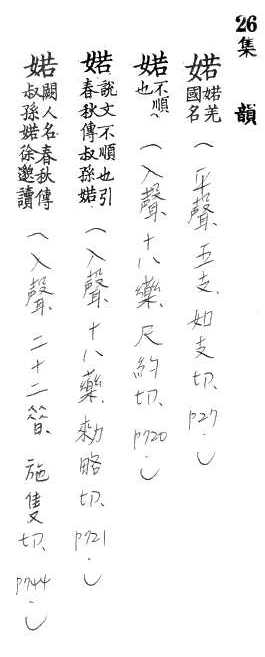 26 集韻
婼 婼羌國名（平聲、五支、如支切、p27.）
婼 不順也（入聲、十八藥、尺約切、p720.）
婼 說文不順也引春秋傳叔孫婼（入聲、十八藥、勑略切、p721.）
婼 闕人名春秋傳叔孫婼徐邈讀（入聲、二十二昔、施隻切、p744.）